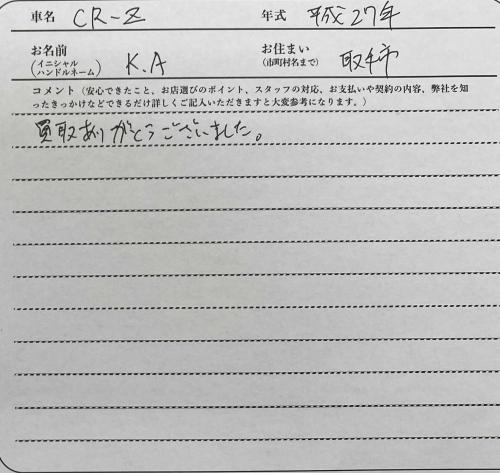 車名 CR-Z 年式 平成27年
お名前 (イニシャル ハンドルネーム) K.A お住まい (市町村名まで) 取手市
コメント（安心できたこと、お店選びのポイント、スタッフの対応、お支払いや契約の内容、弊社を知
ったきっかけなどできるだけ詳しくご記入いただきますと大変参考になります。）
買取ありがとうございました。